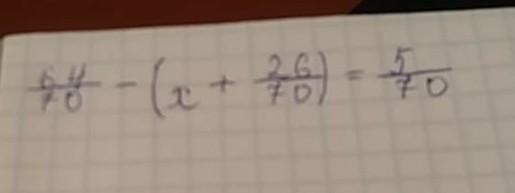 64/70 - (x + 26/70) = 5/70